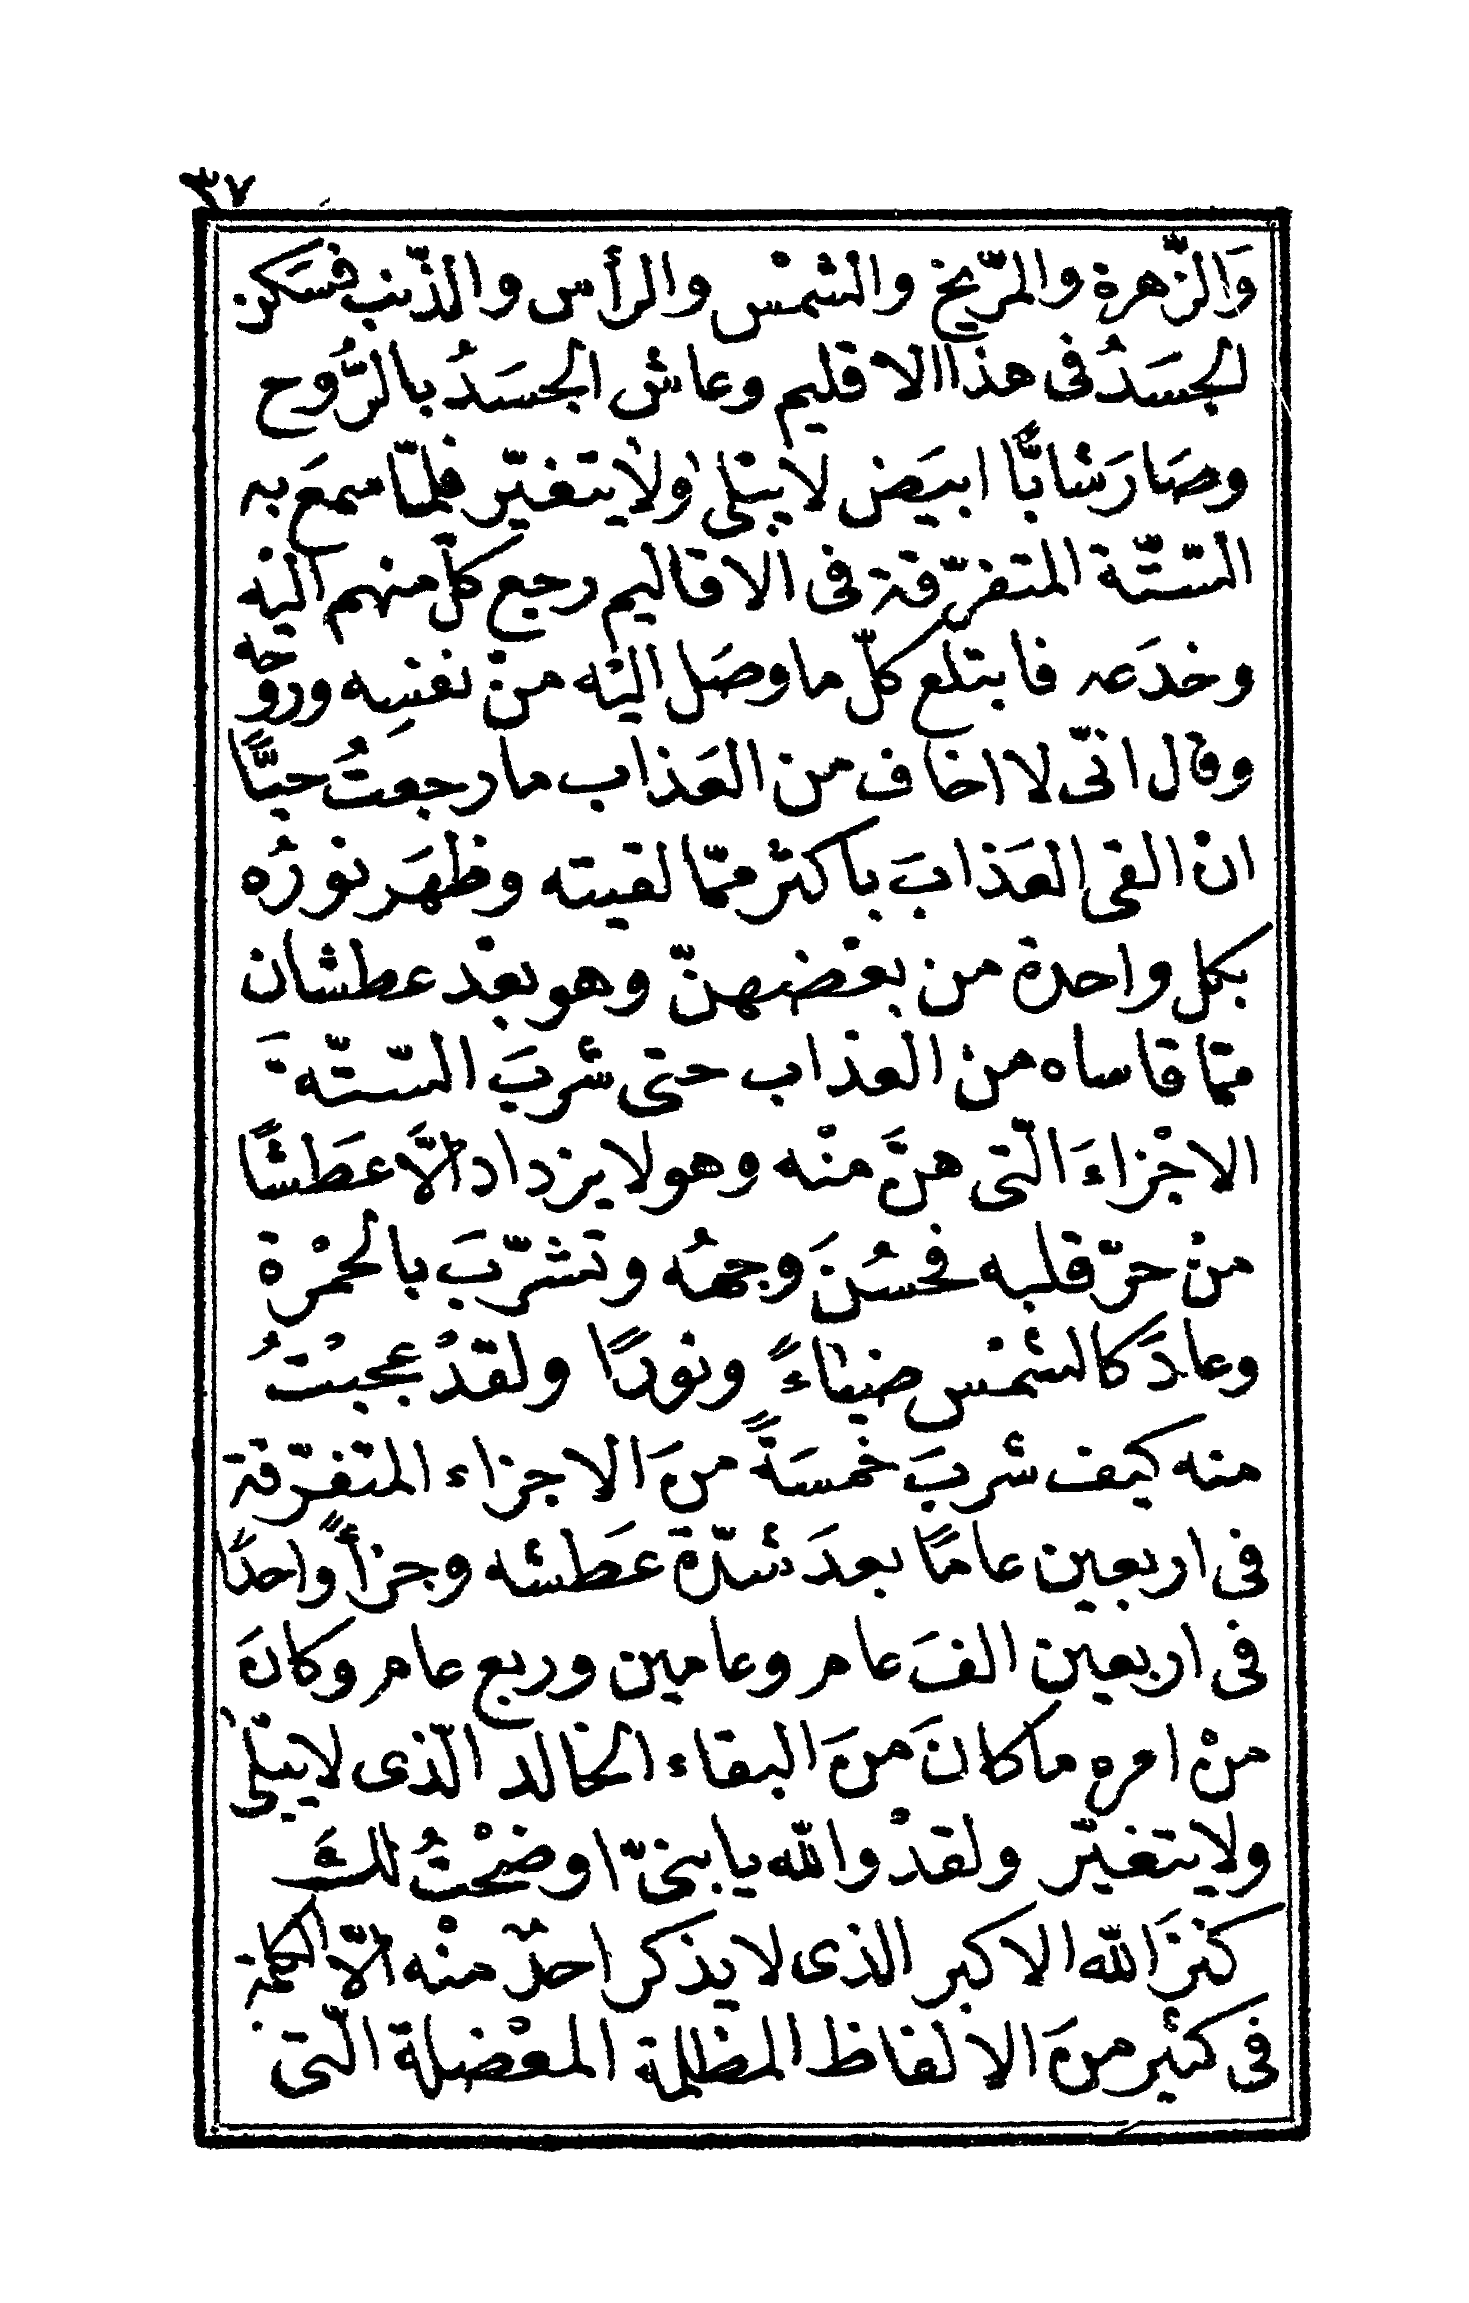 ٣٧
وَالزّهرة والمرّيخ والشمْس والرأس والذّنب فسَكن
الجسَدُ فى هذا الاقليم وعاش الجسَدُ بالرُّوح
وصَار شابًّا ابيَض لايبْلى ولايتغيّر فلمّا سمعَ به
السّتّة المتفرّقة فى الاقاليم رجع كلّ منهم اليْه
وخدَعه فابتلع كلّ ماوصَل اليْه منْ نفسِه وروحه
وقال انّى لا اخاف من العَذاب مارجعتُ حيًّا
انْ القى العَذابَ باكثر ممّا لقيته وظهَر نورُه
بكل واحدة من بعْضهنّ وهو بعْد عطشان
ممّا قاساه من العذاب حتى شربَ السّتّةَ
الاجْزاءَ الّتى هنَّ منْه وهو لا يزداد الّا عطَشًا
منْ حرّ قلبه فحسُنَ وجهُه وتشرّبَ بالحمْرة
وعادَ كالشمْس ضيَاءً ونورًا ولقدْ عجبْتُ
منه كيف شربَ خمسَةً منَ الاجزاء المتفرّقة
فى اربعين عامًا بعدَ شدّة عَطشه وجزأً واحدًا
فى اربعين الفَ عام وعامين وربع عام وكانَ
منْ امره ماكانَ منَ البقاء الخالد الّذى لايبْلى
ولايتغيّر ولقدْ والله يابنىّ اوضحْتُ لكَ
كنزَ الله الاكبر الذى لايذكر احدٌ منْه الّا الكلمة
فى كثير منَ الالفاظ المظلمة المعْضلة الّتى